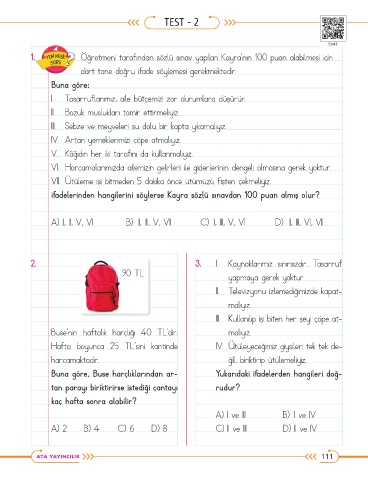 TEST - 2
1. YENİ NESİL SORU Öğretmeni tarafından sözlü sınav yapılan Kayra'nın 100 puan alabilmesi için
dört tane doğru ifade söylemesi gerekmektedir.
Buna göre;
I. Tasarruflarımız, aile bütçemizi zor durumlara düşürür.
II. Bozuk muslukları tamir ettirmeliyiz.
III. Sebze ve meyveleri su dolu bir kapta yıkamalıyız.
IV. Artan yemeklerimizi çöpe atmalıyız.
V. Kâğıdın her iki tarafını da kullanmalıyız.
VI. Harcamalarımızda ailemizin gelirleri ile giderlerinin dengeli olmasına gerek yoktur.
VII. Ütüleme işi bitmeden 5 dakika önce ütümüzü fişten çekmeliyiz.
ifadelerinden hangilerini söylerse Kayra sözlü sınavdan 100 puan almış olur?
A) I, II, V, VI B) II, III, V, VII C) I, III, V, VI D) I, III, VI, VII
2.
90 TL
Buse'nin haftalık harçlığı 40 TL'dir.
Hafta boyunca 25 TL'sini kantinde
harcamaktadır.
Buna göre, Buse harçlıklarından ar-
tan parayı biriktirirse istediği çantayı
kaç hafta sonra alabilir?
A) 2 B) 4 C) 6 D) 8
3. I. Kaynaklarımız sınırsızdır. Tasarruf
yapmaya gerek yoktur.
II. Televizyonu izlemediğimizde kapat-
malıyız.
III. Kullanılıp işi biten her şeyi çöpe at-
malıyız.
IV. Ütüleyeceğimiz giysileri tek tek de-
ğil, biriktirip ütülemeliyiz.
Yukarıdaki ifadelerden hangileri doğ-
rudur?
A) I ve III B) I ve IV
C) II ve III D) II ve IV
ATA YAYINCILIK
111